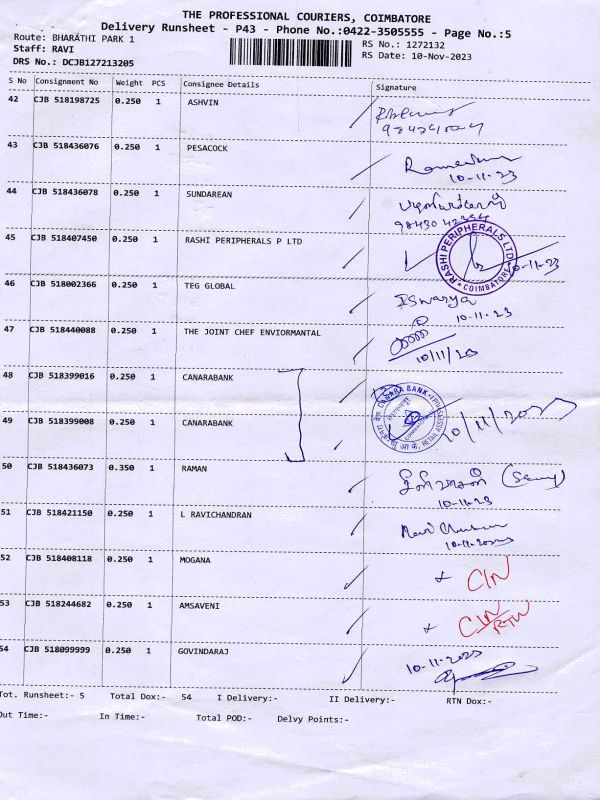 THE PROFESSIONAL COURIERS, COIMBATORE
Delivery Runsheet - P43 - Phone No.:0422-3505555 - Page No.:5
Route: BHARATHI PARK 1 RS No.: 1272132
Staff: RAVI RS Date: 10-Nov-2023
DRS No.: DCJB127213205
S No Consignment No Weight PCS Consignee Details Signature
42 CJB 518198725 0.250 1 ASHVIN
43 CJB 518436076 0.250 1 PESACOCK
10-11-23
44 CJB 518436078 0.250 1 SUNDAREAN
45 CJB 518407450 0.250 1 RASHI PERIPHERALS P LTD
RASHI PERIPHERALS LTD COIMBATORE
10-11-23
46 CJB 518002366 0.250 1 TEG GLOBAL Iswarya
10-11-23
47 CJB 518440088 0.250 1 THE JOINT CHEF ENVIORMANTAL
10/11/20
48 CJB 518399016 0.250 1 CANARABANK
CANARA BANK
49 CJB 518399008 0.250 1 CANARABANK 10/11/2023
50 CJB 518436073 0.350 1 RAMAN
10-11-23
51 CJB 518421150 0.250 1 L RAVICHANDRAN
10-11-2023
52 CJB 518408118 0.250 1 MOGANA CIN
53 CJB 518244682 0.250 1 AMSAVENI CIN
RTN
54 CJB 518099999 0.250 1 GOVINDARAJ 10-11-2023
Tot. Runsheet:- 5 Total Dox:- 54 I Delivery:- II Delivery:- RTN Dox:-
Out Time:- In Time:- Total POD:- Delvy Points:-